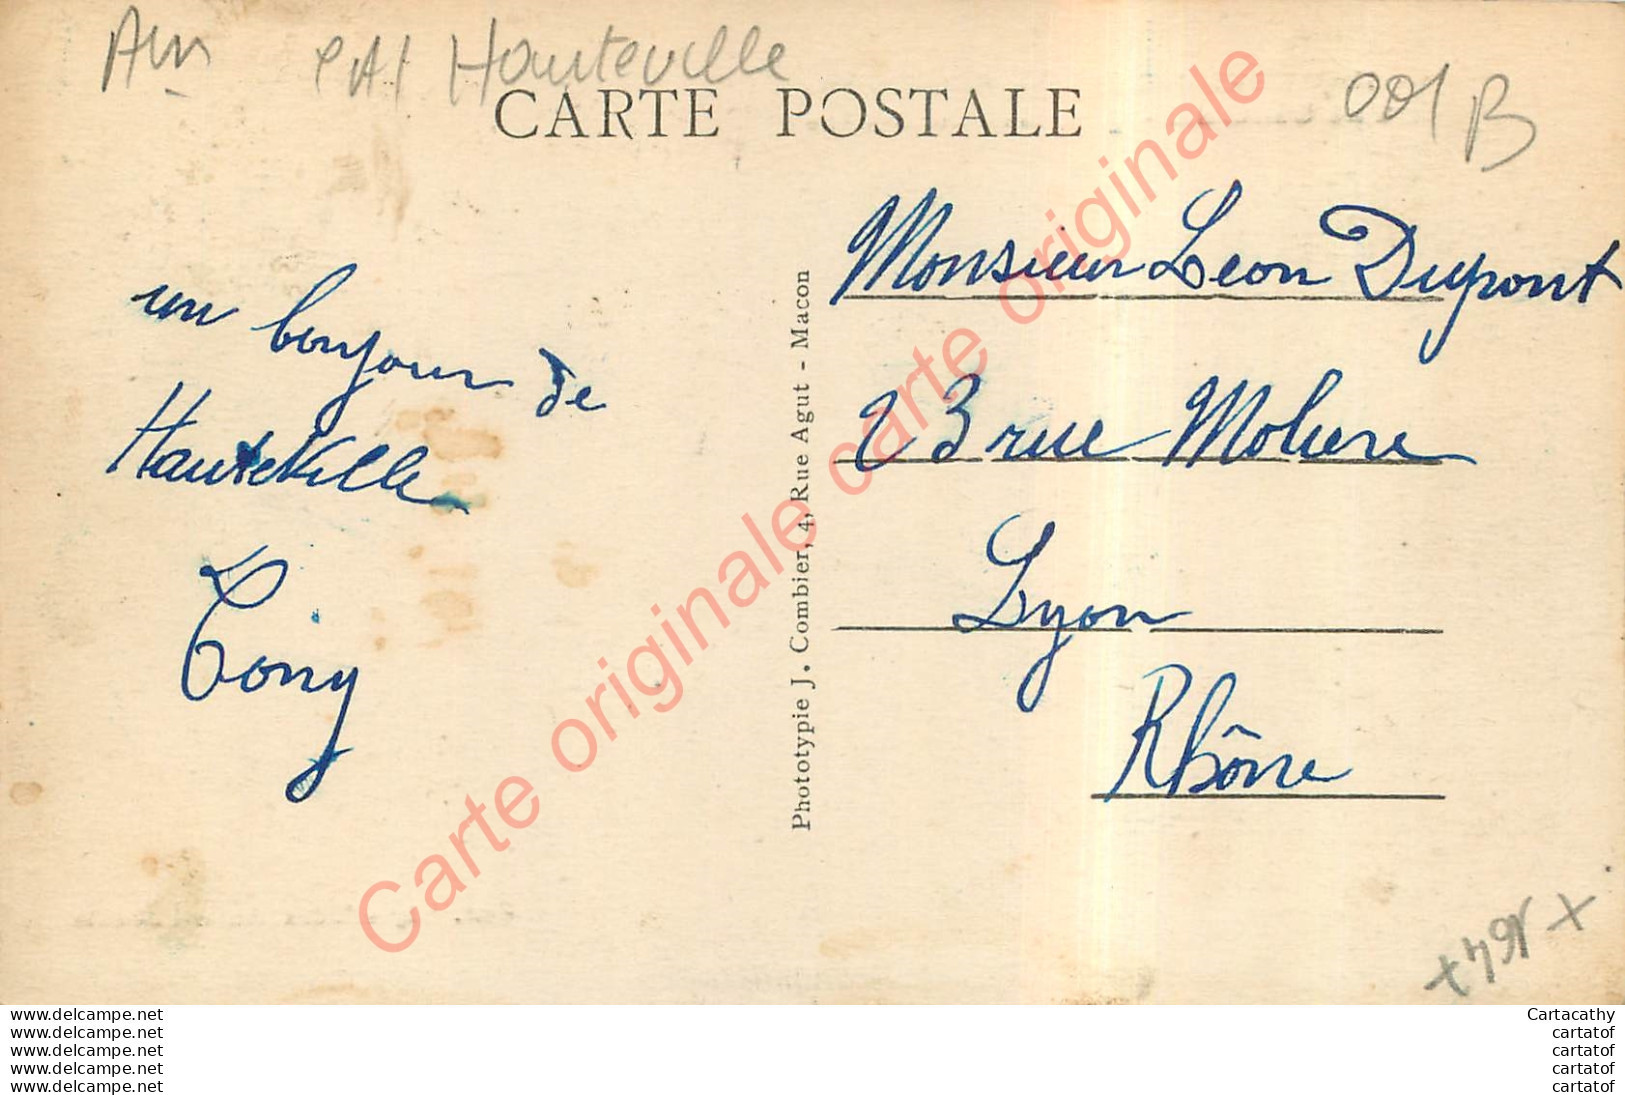 Ain Hauteville 001 B
CARTE POSTALE
un bonjour de
Hauteville
Tony
Phototypie J. Combier, 4, Rue Agut - Macon
Monsieur Leon Dupont
23 rue Moliere
Lyon
Rhône
Carte originale carte originale
x 164 x
www.delcampe.net
www.delcampe.net
www.delcampe.net
www.delcampe.net
www.delcampe.net
Cartacathy
cartatof
cartatof
cartatof
cartatof